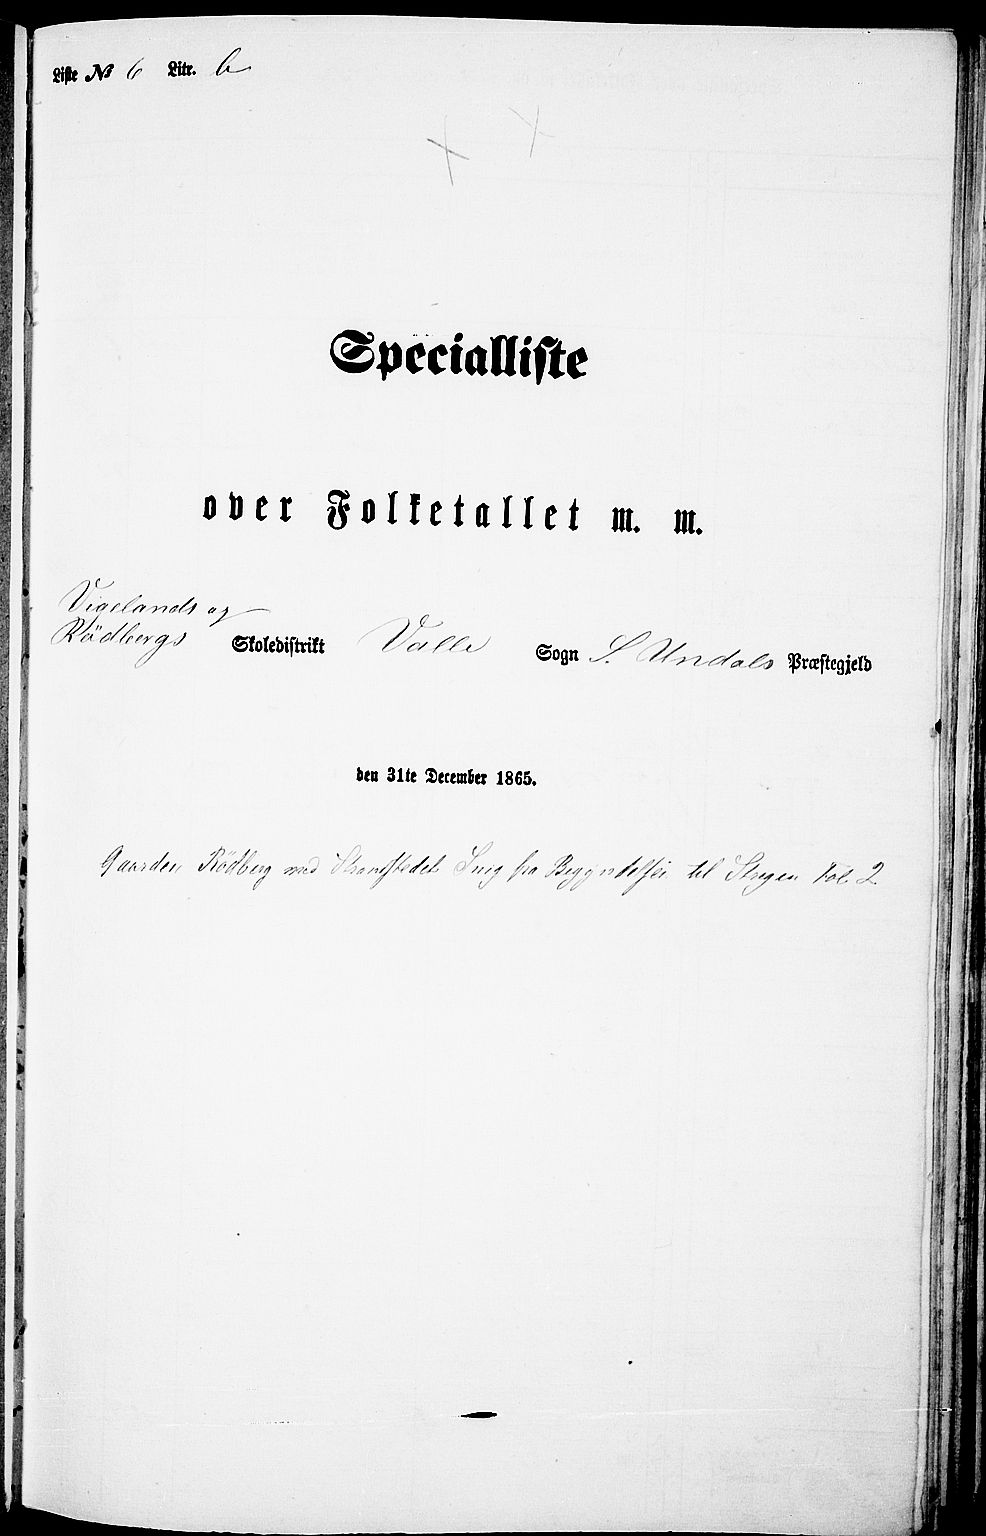 Liste № 6 Litr. b
Specialliste
over Folketallet m. m.
Vigelands og
Rödbergs Skoledistrikt Valle Sogn S. Undals Præstegjeld
den 31te December 1865.
Gaarden Rödberg med Strandstedet Snig fra Begyndelsen til Stegen Fol 2